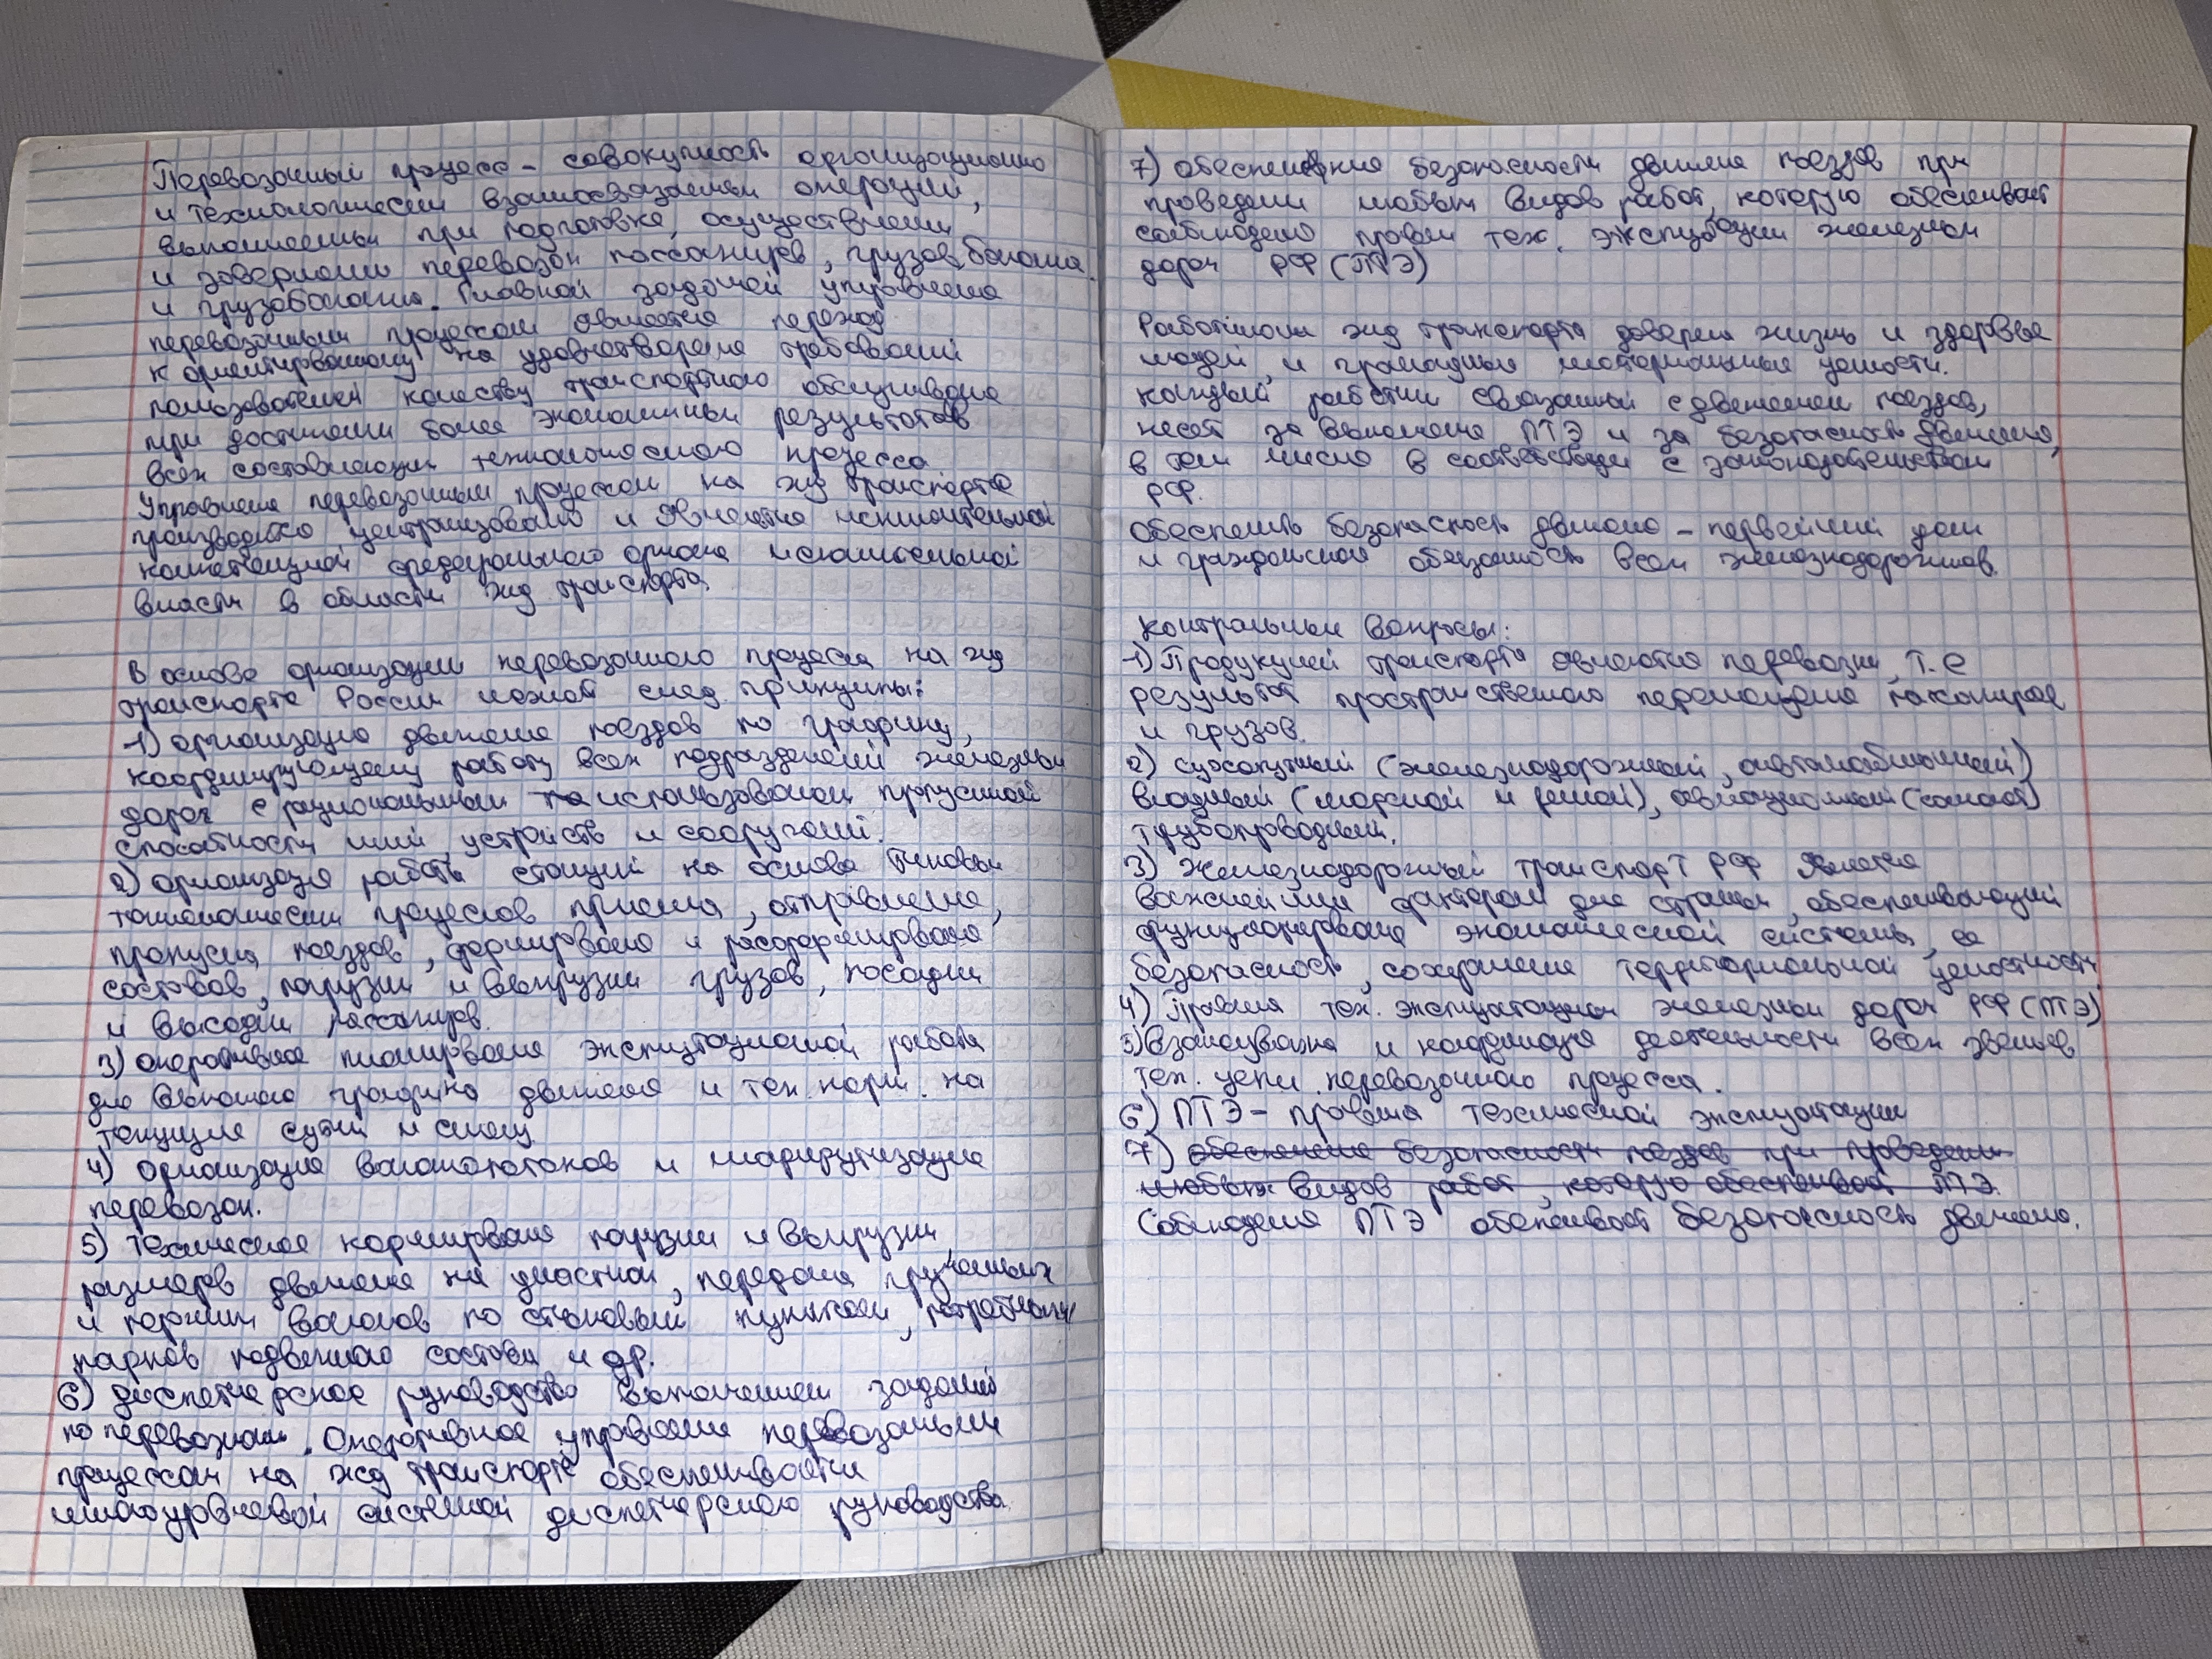 Перевозочный процесс - совокупность организационно
и технологически взаимосвязанных операций,
выполняемых при подготовке, осуществлении
и завершении перевозок пассажиров, грузов, багажа
и грузобагажа. Главной задачей управления
перевозочным процессом является переход
к ориентированному на удовлетворение требований
пользователей качеству транспортного обслуживания
при достижении более экономичных результатов
всех составляющих технологического процесса.
Управление перевозочным процессом на жд транспорте
производится централизовано и является исключительной
компетенцией федерального органа исполнительной
власти в области жд транспорта.
В основе организации перевозочного процесса на жд
транспорте России лежат след. принципы:
1) организация движения поездов по графику,
координирующему работу всех подразделений железных
дорог с рациональным использованием пропускной
способности линий, устройств и сооружений.
2) организация работы станций на основе типовых
технологических процессов приема, отправления,
пропуска поездов, формирования и расформирования
составов, погрузки и выгрузки грузов, посадки
и высадки пассажиров.
3) оперативное планирование эксплуатационной работы
для выполнения графика движения и тех. норм. на
текущие сутки и смену
4) организация вагонопотоков и маршрутизация
перевозок.
5) техническое нормирование погрузки и выгрузки
размеров движения на участках, передача груженых
и порожних вагонов по стыковым пунктам, потребного
парков подвижного состава и др.
6) диспетчерское руководство выполнением заданий
по перевозкам. Оперативное управление перевозочным
процессом на жд транспорте обеспечивается
многоуровневой системой диспетчерского руководства
7) обеспечение безопасности движения поездов при
проведении любых видов работ, которую обеспечивает
соблюдение правил тех. эксплуатации железных
дорог РФ (ПТЭ)
Работникам жд транспорта доверены жизнь и здоровье
людей, и громадные материальные ценности.
каждый работник связанный с движением поездов,
несет за выполнение ПТЭ и за безопасность движения,
в том числе в соответствии с законодательством
РФ.
Обеспечить безопасность движения - первейший долг
и гражданская обязанность всех железнодорожников.
Контрольные вопросы:
1) Продукцией транспорта являются перевозки, т.е
результат пространственного перемещения пассажиров
и грузов.
2) сухопутный (железнодорожный, автомобильный)
водный (морской и речной), авиационный (самолет)
трубопроводный.
3) железнодорожный транспорт РФ является
важнейшим фактором для страны, обеспечивающий
функционирование экономической системы, ее
безопасность, сохранение территориальной целостности
4) Правила тех. эксплуатации железных дорог РФ (ПТЭ)
5) взаимоувязка и координация деятельности всех звеньев
тех. цепи перевозочного процесса.
6) ПТЭ - правила технической эксплуатации
7) обеспечение безопасности поездов при проведении
любых видов работ, которую обеспечивает ПТЭ.
Соблюдение ПТЭ обеспечивает безопасность движения.